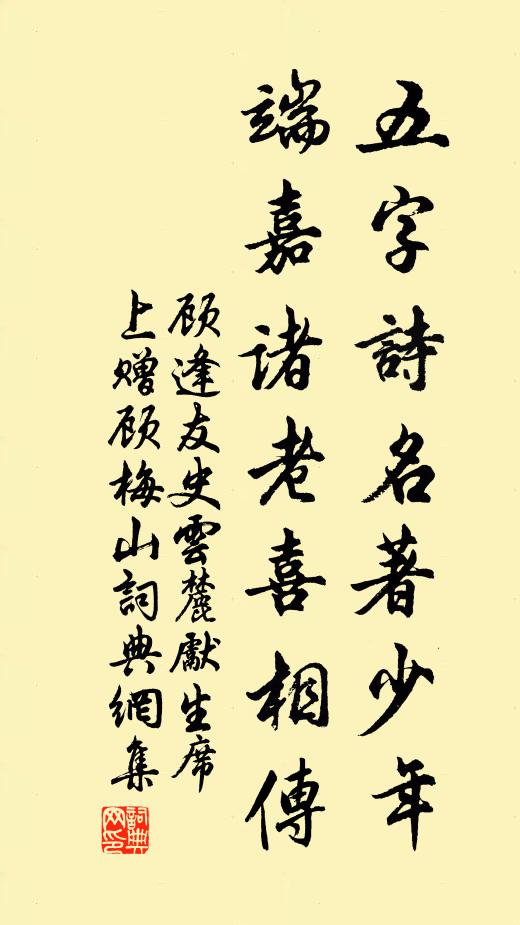 五字詩名著少年
端嘉诸老喜相傳
顾逢友史雲麓獻生席
上赠顾梅山詞典網集
詞典网印